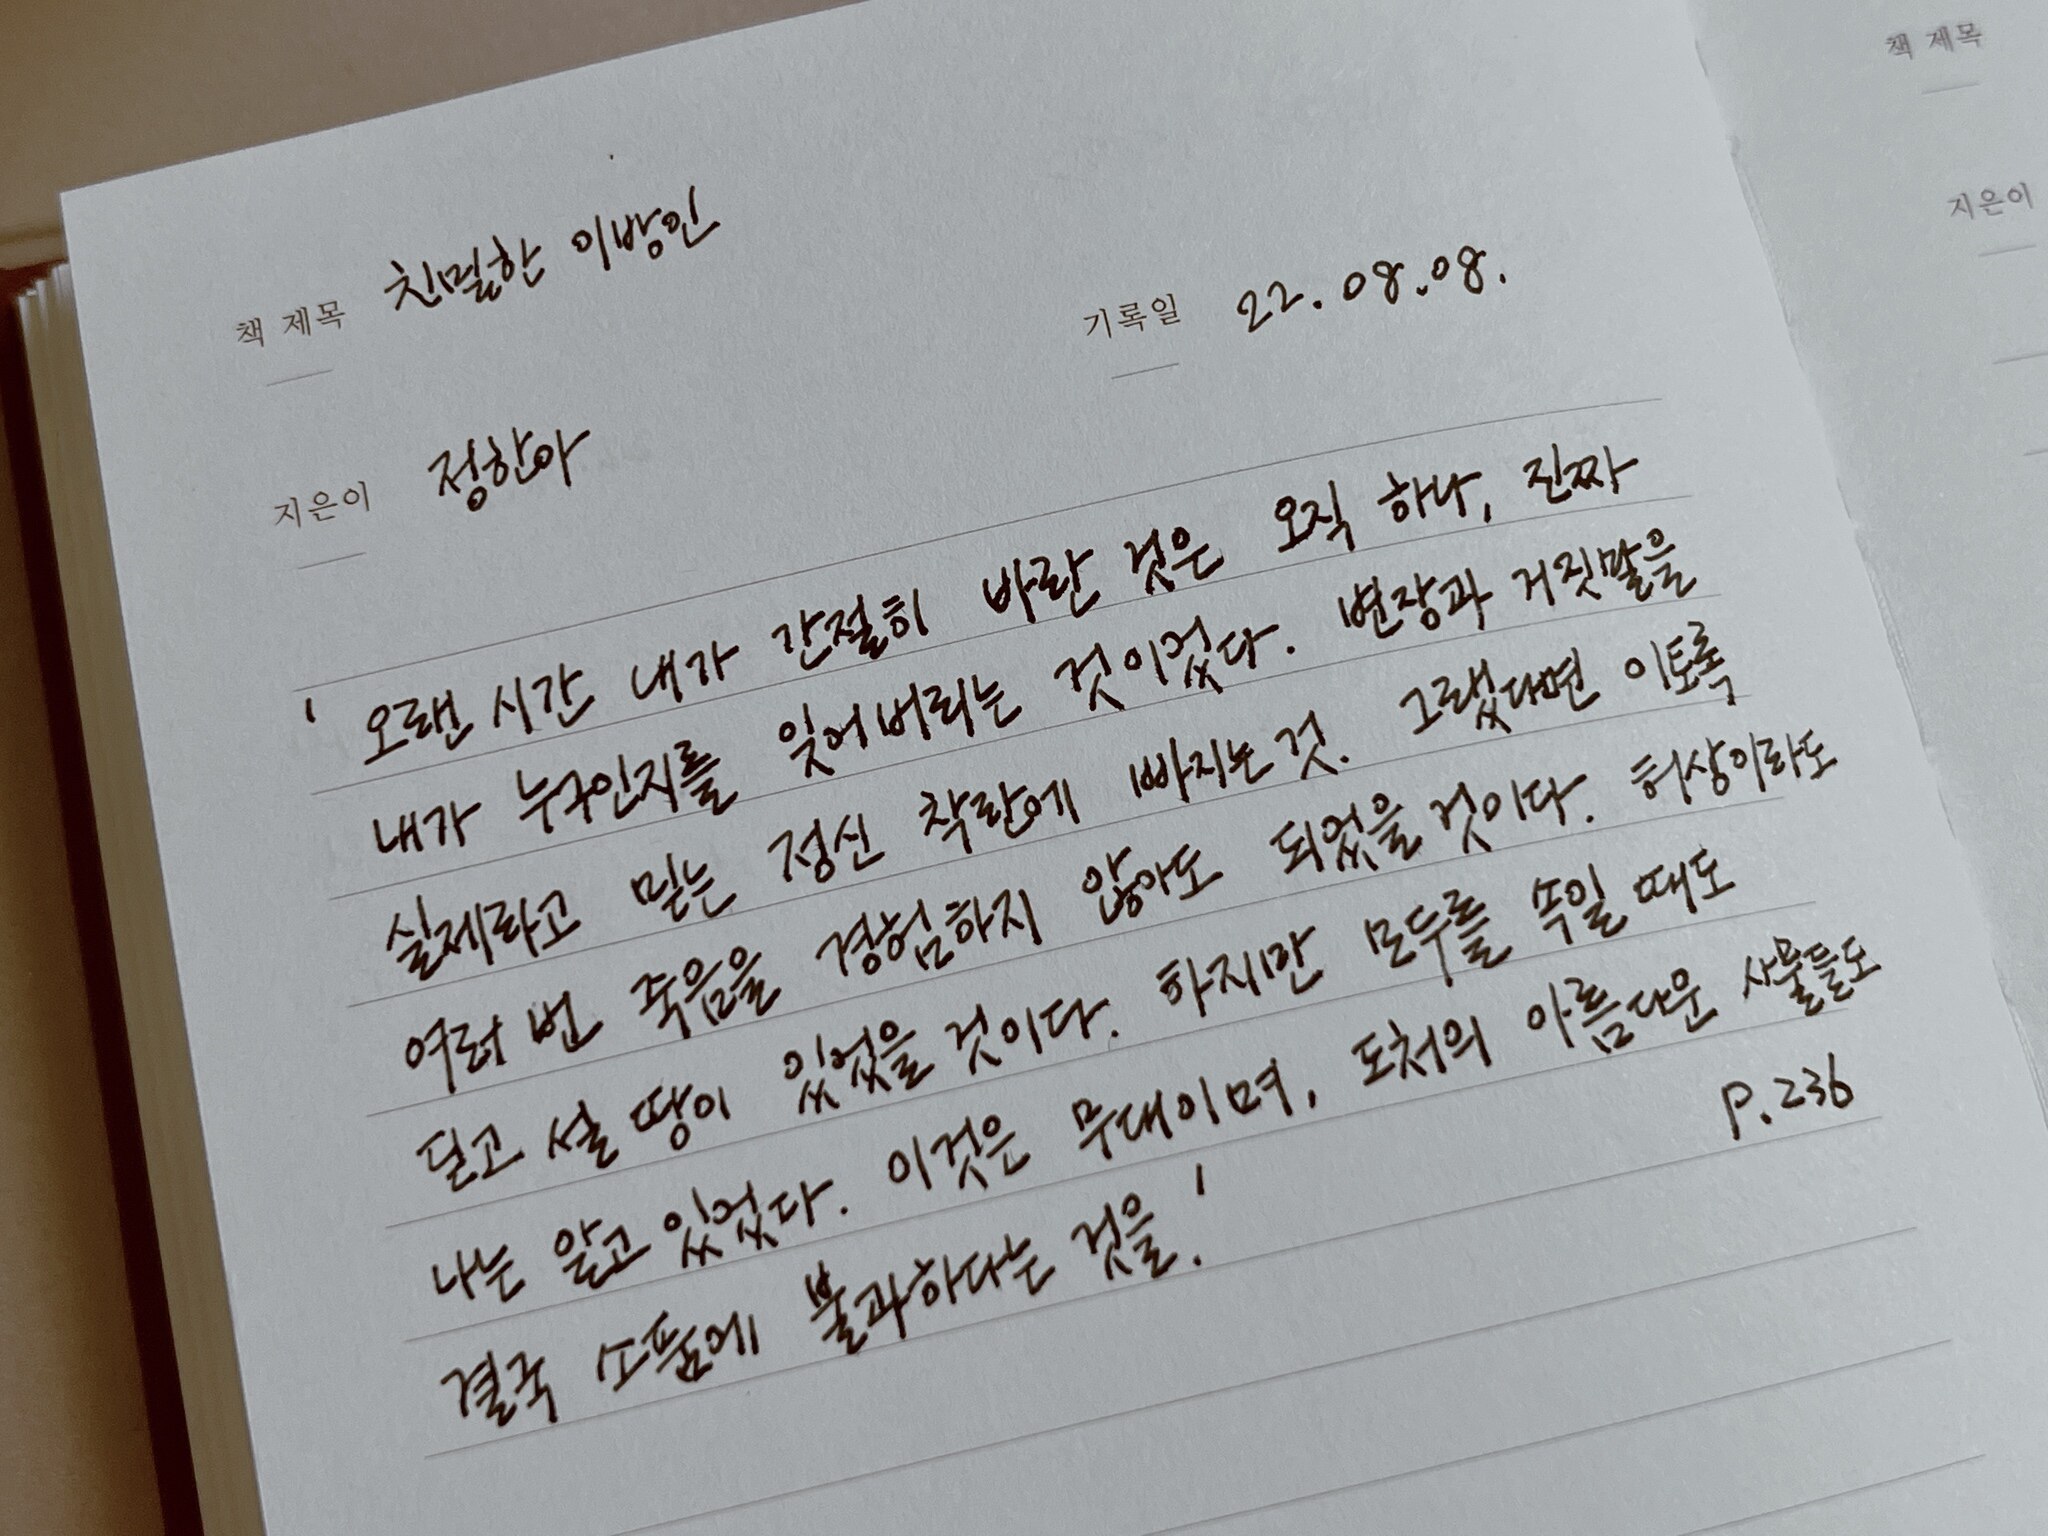 책 제목 친밀한 이방인
기록일 22.08.08.
지은이 정한아
' 오랜 시간 내가 간절히 바란 것은 오직 하나, 진짜
내가 누구인지를 잊어버리는 것이었다. 변장과 거짓말을
실제라고 믿는 정신 착란에 빠지는 것. 그랬다면 이토록
여러 번 죽음을 경험하지 않아도 되었을 것이다. 허상이라도
딛고 설 땅이 있었을 것이다. 하지만 모두를 속일 때도
나는 알고 있었다. 이것은 무대이며, 도처의 아름다운 사물들도
결국 소품에 불과하다는 것을. '
P.236
책 제목
지은이